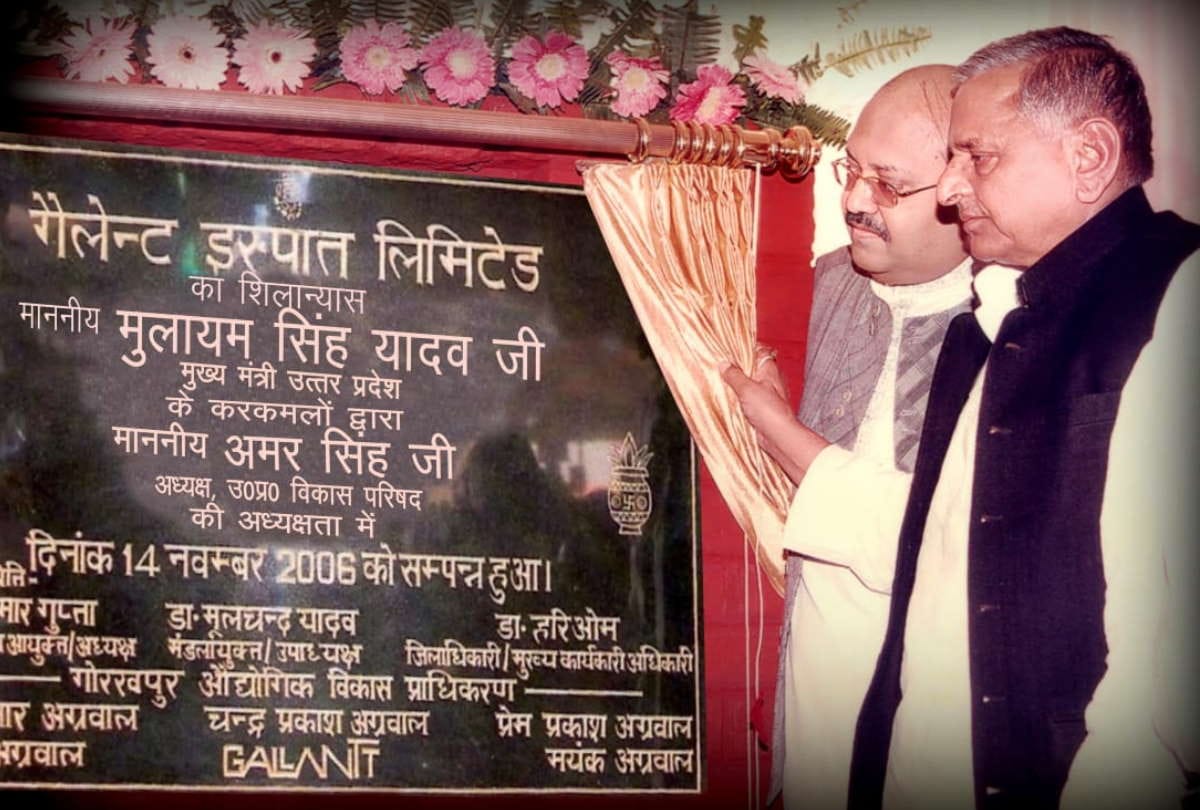 गैलेन्ट इस्पात लिमिटेड
का शिलान्यास
माननीय मुलायम सिंह यादव जी
मुख्य मंत्री उत्तर प्रदेश
के करकमलों द्वारा
माननीय अमर सिंह जी
अध्यक्ष, उ0प्र0 विकास परिषद
की अध्यक्षता में
दिनांक 14 नवम्बर 2006 को सम्पन्न हुआ।
गुप्ता डा॰ मूलचन्द यादव डा॰ हरिओम
आयुक्त/अध्यक्ष मंडलायुक्त/उपाध्यक्ष जिलाधिकारी/मुख्य कार्यकारी अधिकारी
गोरखपुर औद्योगिक विकास प्राधिकरण
अग्रवाल चन्द्र प्रकाश अग्रवाल प्रेम प्रकाश अग्रवाल
अग्रवाल GALLANTT मयंक अग्रवाल